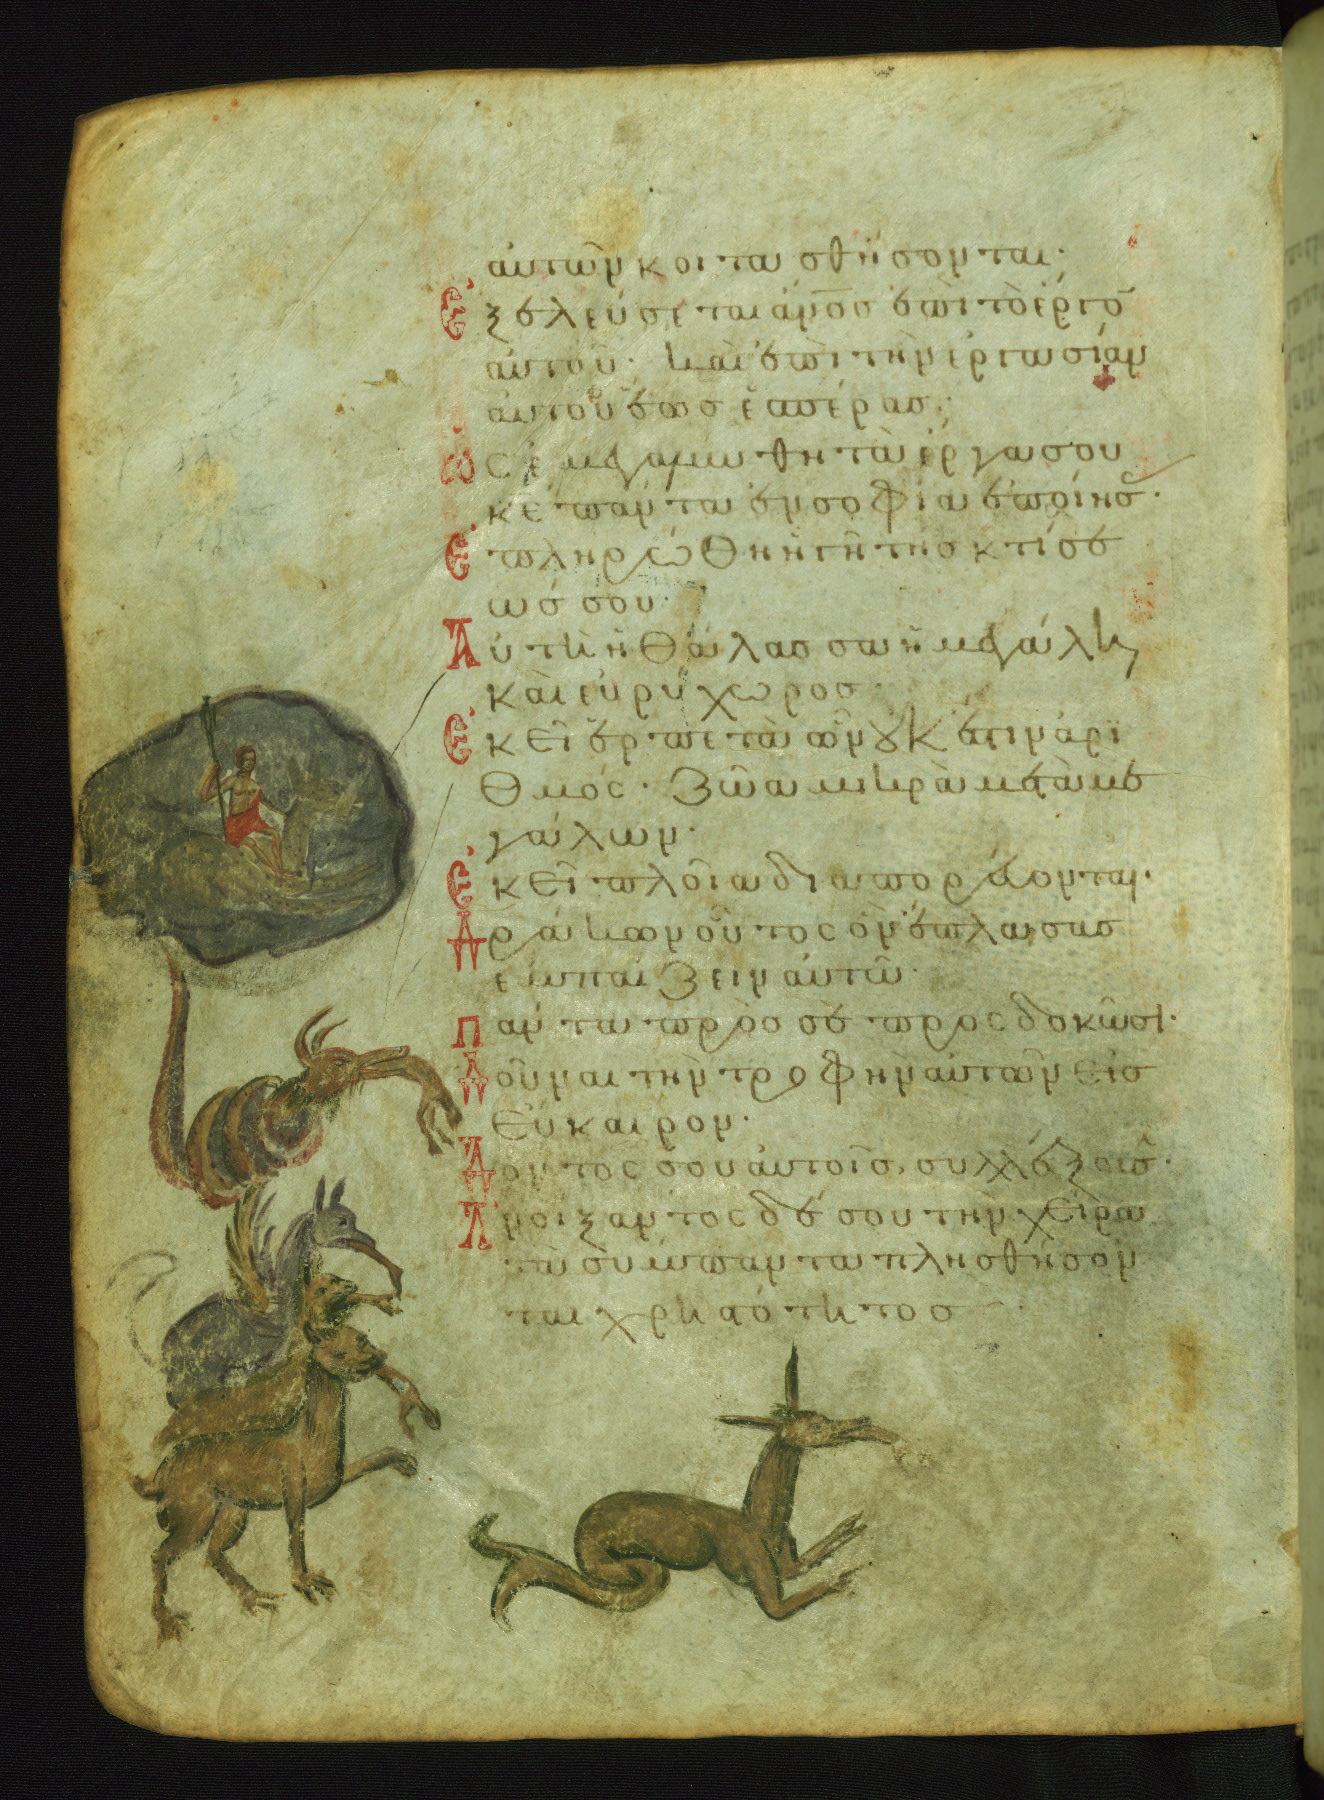 αὐτῶν κοιτασθήσονται·
Ἐξελεύσεται ἄν̅ο̅ς̅ ἐπὶ τὸ ἔργο̅
αὐτοῦ· καὶ ἐπὶ τὴν ἐργασίαν
αὐτοῦ ἕως ἑσπέρας·
Ὡς ἐμεγαλύνθη τὰ ἔργα σου
κε̅ πάντα ἐν σοφία ἐποίησ·
Ἐπληρώθη ἡ γῆ τῆς κτίσε
ώς σου·
Αὕτη ἡ θάλασσα ἡ μεγάλη
καὶ εὐρύχωρος·
Ἐκεῖ ἑρπετὰ ὧν οὐκ ἔστιν ἀρι
θμός· ζῶα μικρὰ μετὰ με
γάλων·
Ἐκεῖ πλοῖα διαπορεύονται·
Δράκων οὗτος ὃν ἔπλασας
ἐμπαίζειν αὐτῶ·
Πάντα πρὸς σὲ προσδοκῶσι·
Δοῦναι τὴν τροφὴν αὐτῶν εἰς
εὔκαιρον·
Δόντος σου αὐτοῖς, συλλέξουσ̅·
Ἀνοίξαντος δέ σου τὴν χεῖρα
τὰ σύμπαντα πλησθήσον
ται χρηστότητος